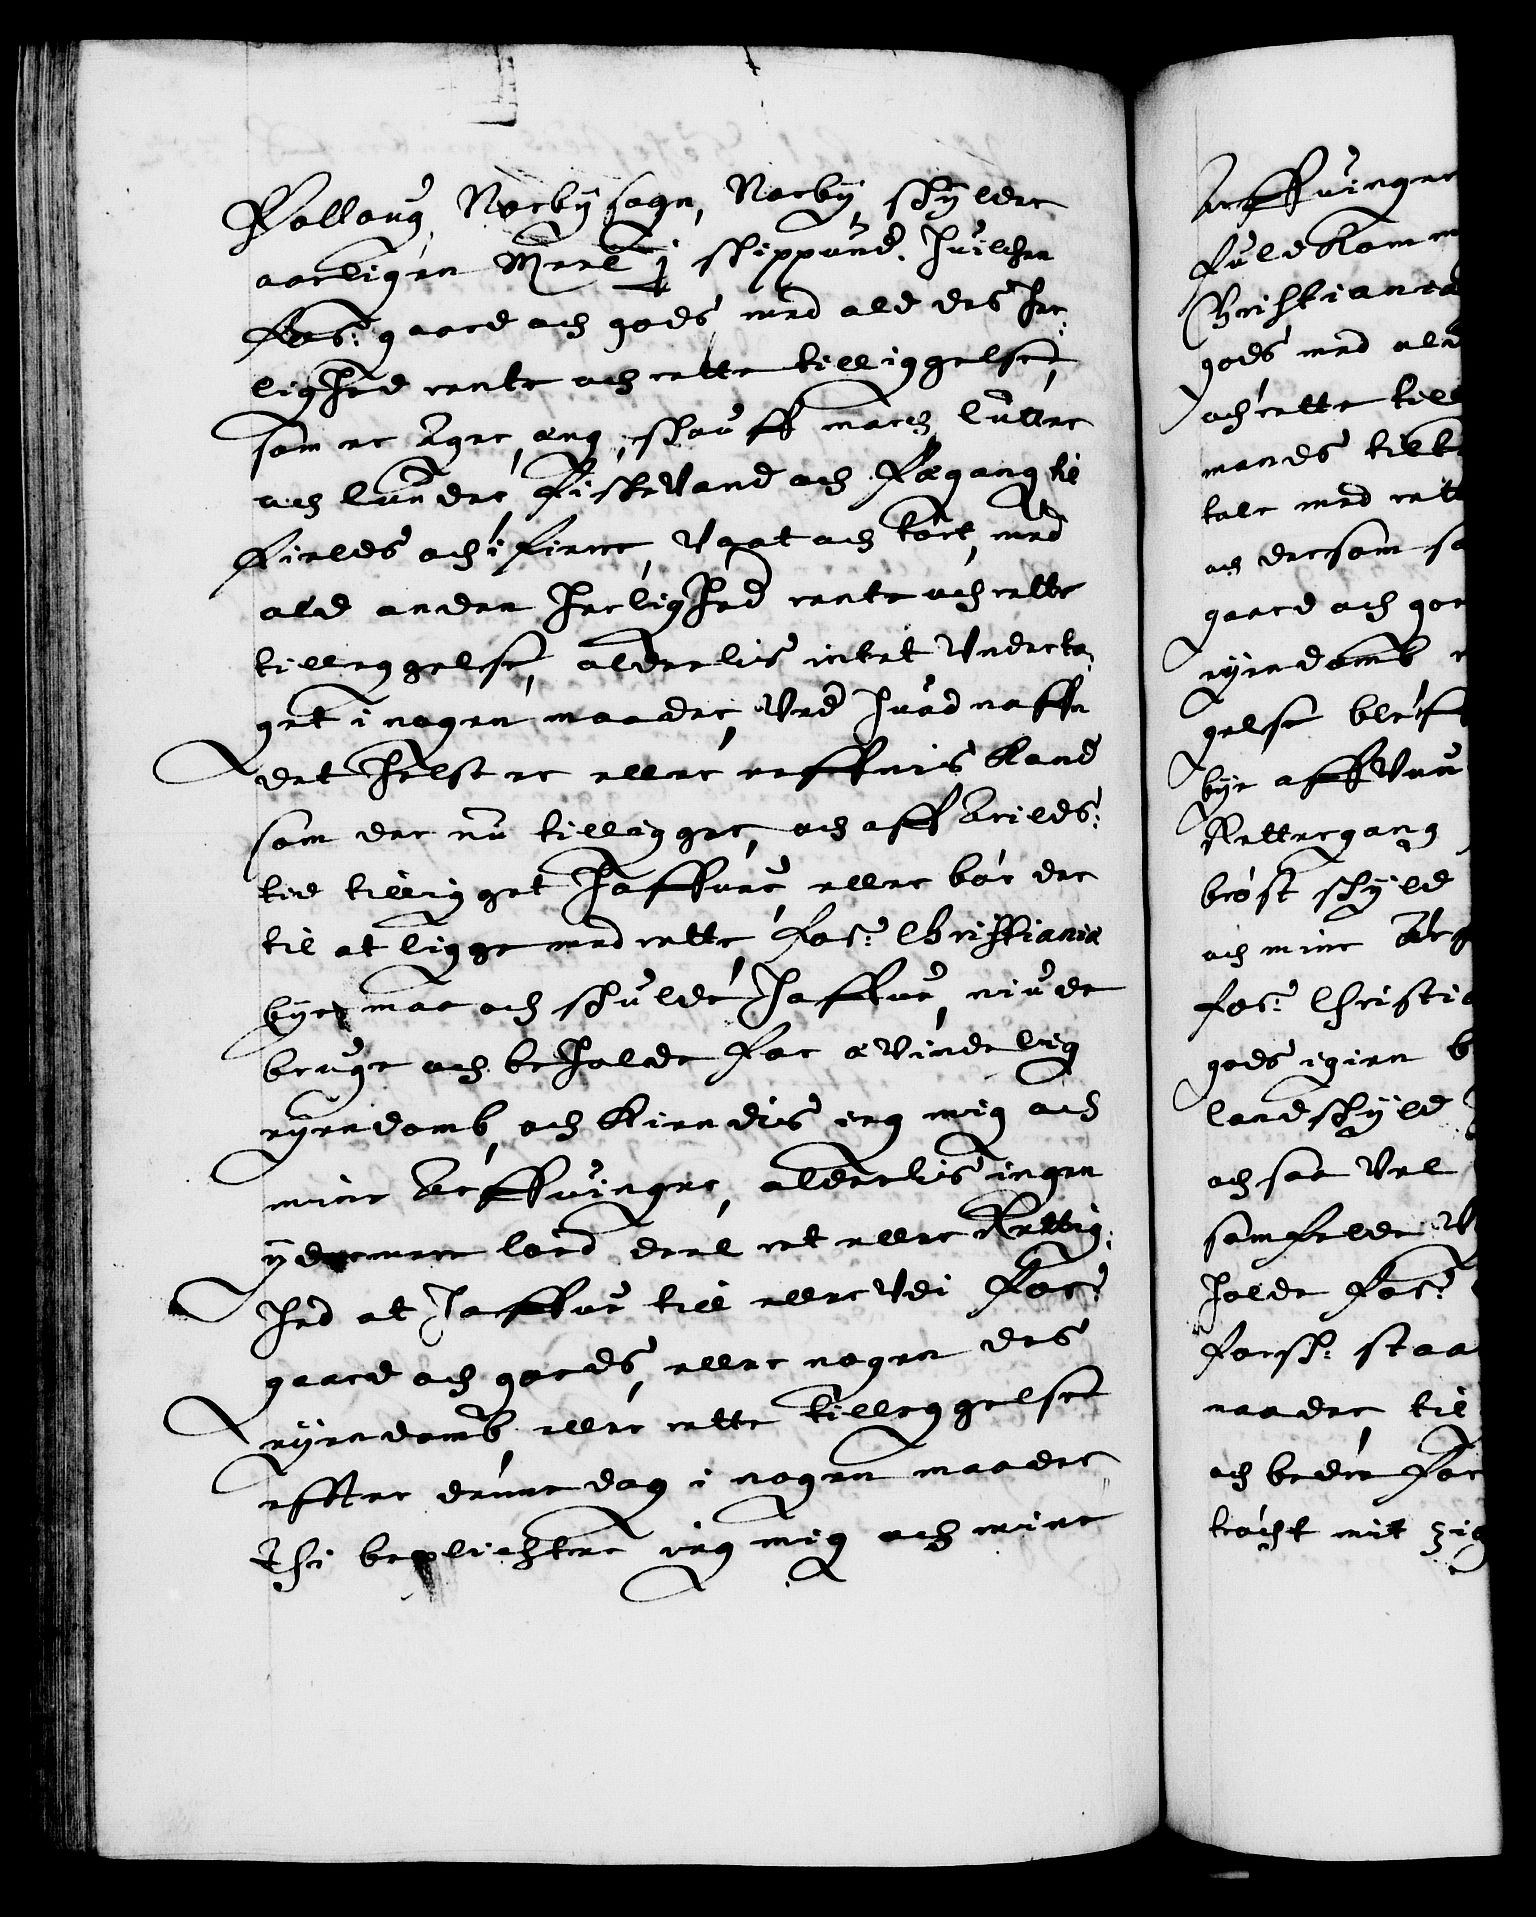 Folloug, Norby sogn, Norby, schylder
aarligen Meel j skippund. Huilchen
for:ne gaard och gods med ald des her¬
lighed rente och rette tilliggelser,
som er Agre, eng, skouff march, lutter
och lunder, fiskeVand och fægang til
fields och i fierre, Vaat och tört, med
ald anden herlighed rente och rette
tilleggelse, alderlis intet Vnderta¬
get i nogen maader, Ved huad naffn
det helst er eller neffnis kand
som der nu tilligger, och aff Arilds:
tid tilligget haffuer, eller bör der
til at ligge med rette, for:ne Christiania
bye maa och schulde haffue, niude
bruge och beholde for æVindelig
eyendomb, och kiendis ieg mig och
mine Arffuinger, alderlis ingen
ydermere lord deel ret eller Rettig¬
hed at haffue till eller Vdi for:ne
gaard och goeds, eller nogen des
eyendomb, eller rette tilleggelser
effter denne dag i nogen maader
Thi bepligter ieg mig och mine
Arffuinger
fuldkomm
Christiania
gods med ald
och rette till
mands tilt
tale med rett
och dersom sa
gaard och goe
eyendomb
gelse bleff
bye aff Vnu
Rettergang
bröst schyld
och mine Arf
for:ne Christia
gods igien b
landschyld
och saa Vel
samfelde V
holde for:ne
forsch: staa
maader til
och beder for
tröcht mit zig